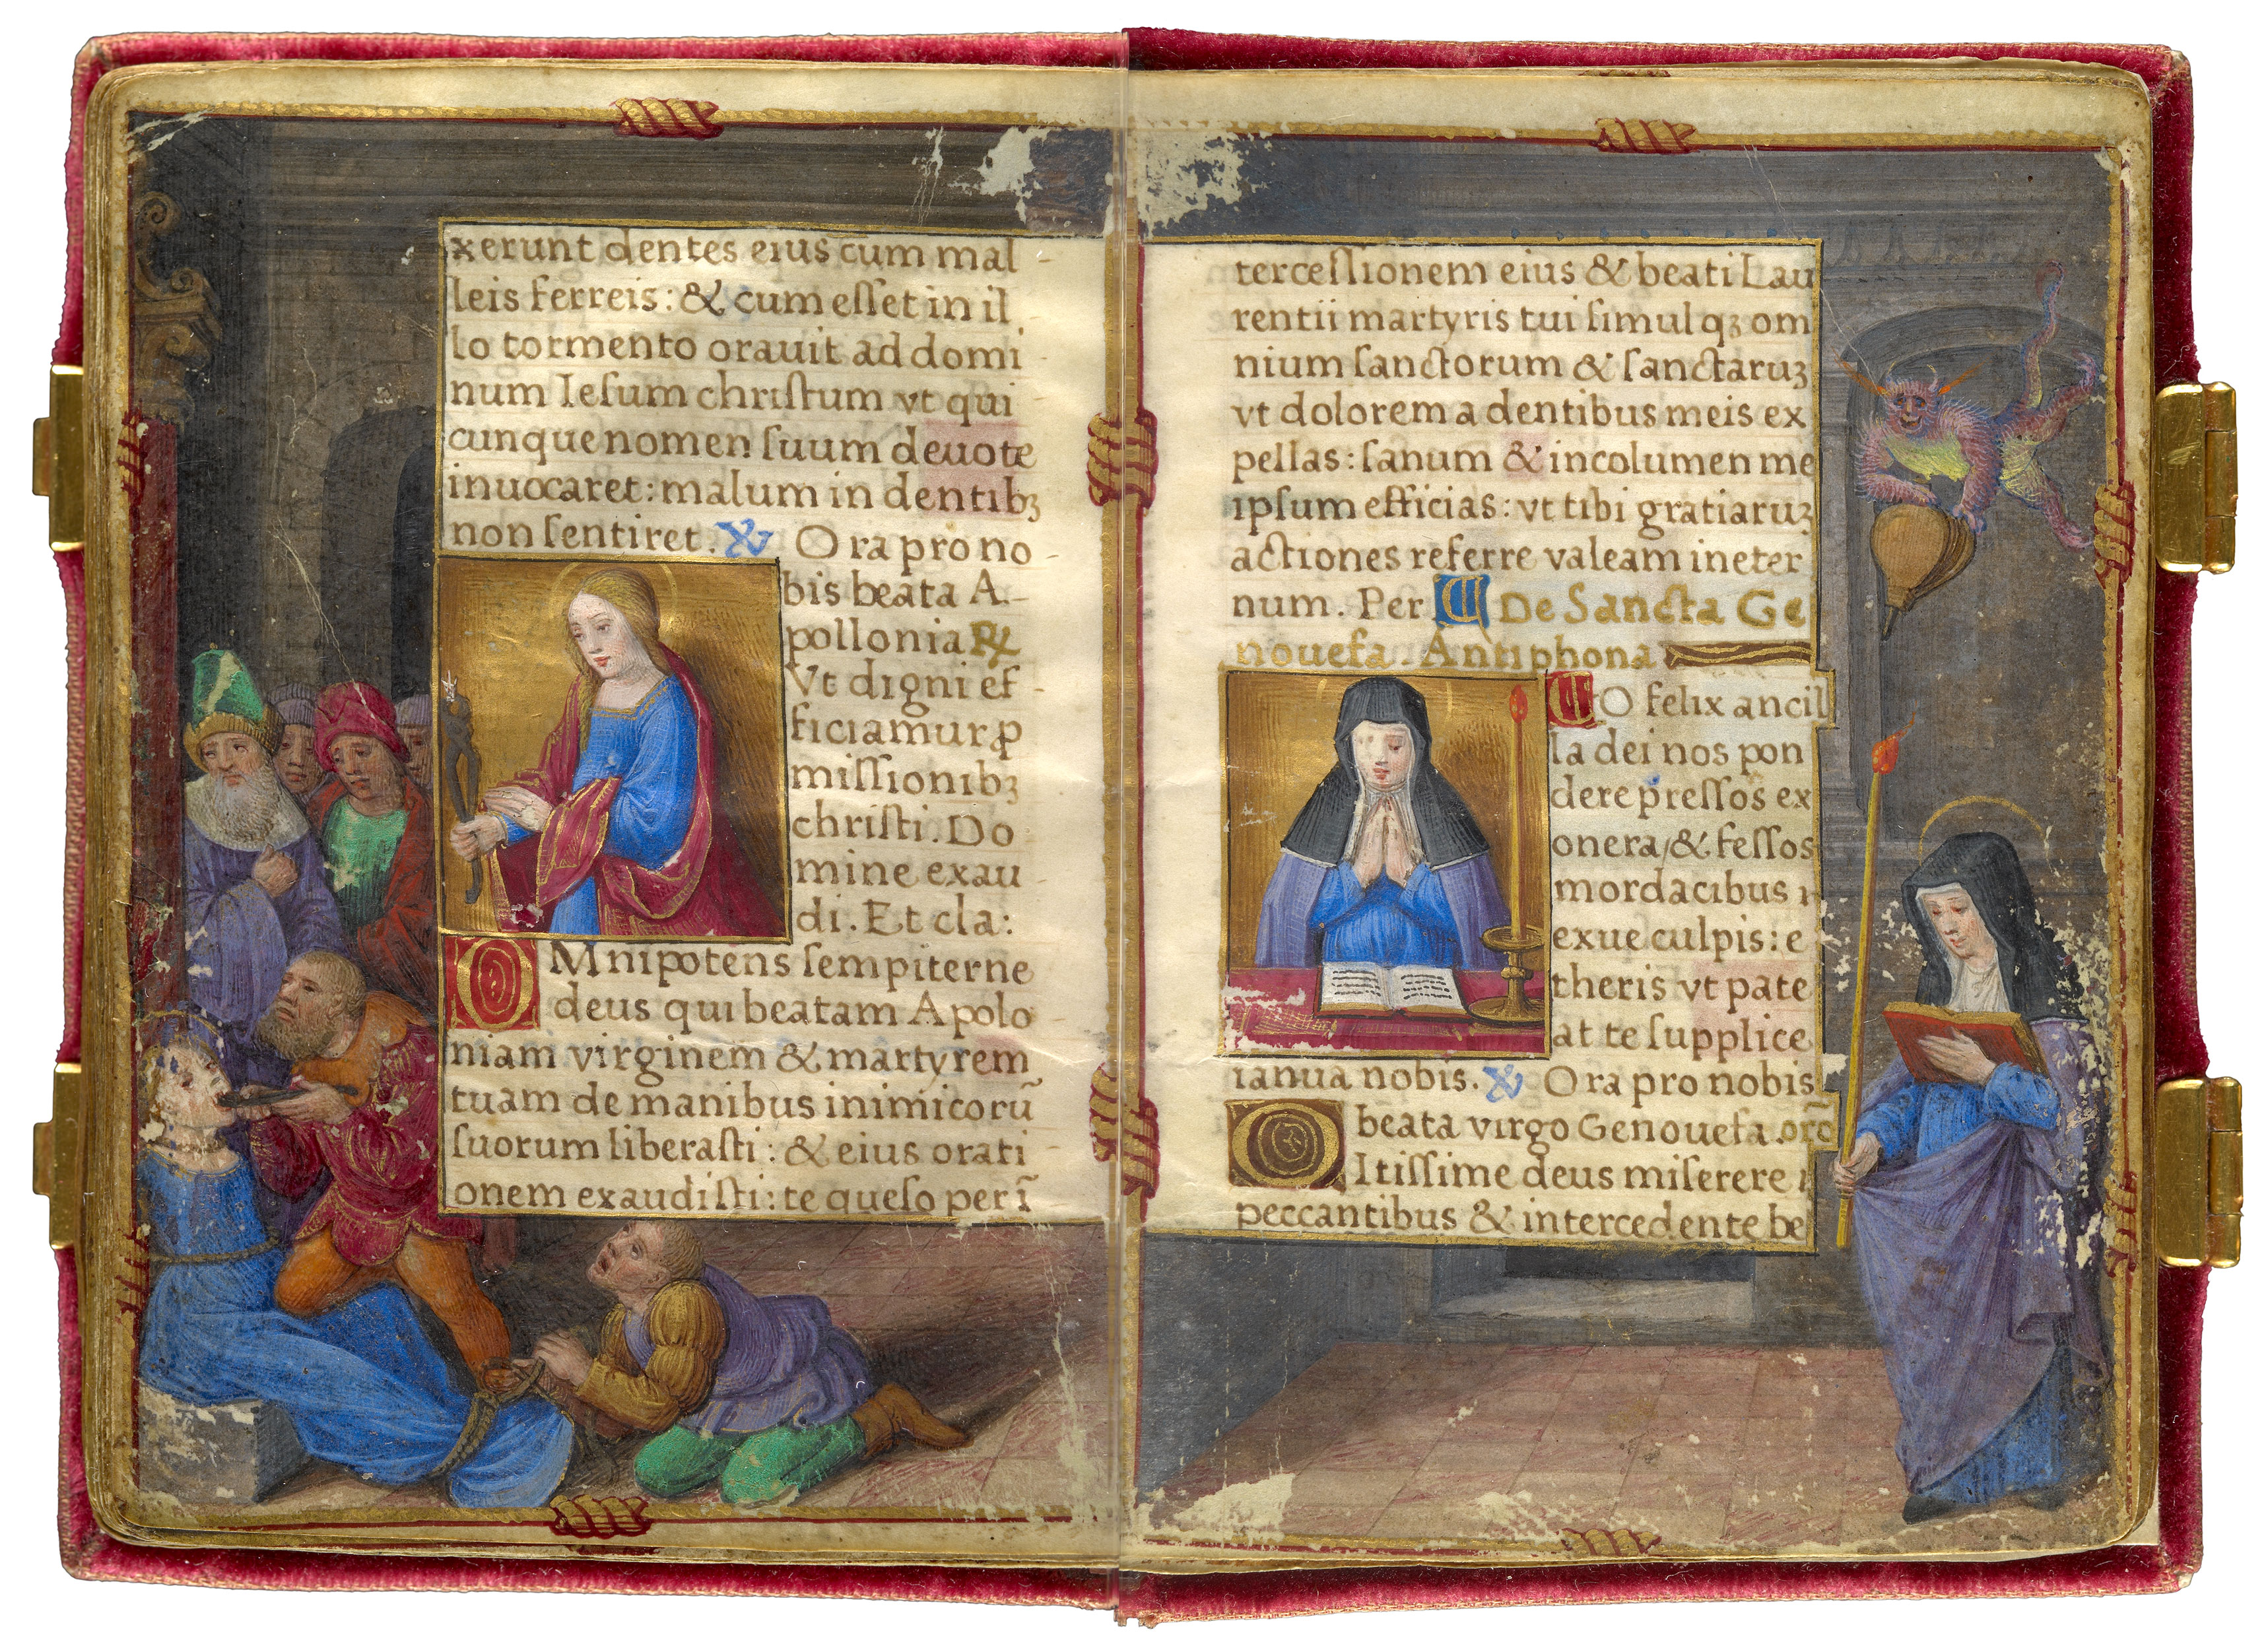 xerunt dentes eius cum mal-
leis ferreis: & cum eſſet in il
lo tormento orauit ad domi-
num Ieſum chriſtum vt qui
cunque nomen ſuum deuote
inuocaret: malum in dentibꝫ
non ſentiret. ℣ Ora pro no-
bis beata A-
pollonia ℟
Vt digni ef-
ficiamur ꝓ
miſſionibꝫ
chriſti. Do
mine exau-
di. Et cla:
OMnipotens ſempiterne
deus qui beatam Apolo-
niam virginem & martyrem
tuam de manibus inimicorū
ſuorum liberaſti: & eius orati-
onem exaudiſti: te queſo per ī
terceſſionem eius & beati Lau
rentii martyris tui ſimul qꝫ om
nium ſanctorum & ſanctaruꝫ
vt dolorem a dentibus meis ex
pellas: ſanum & incolumen me
ipſum efficias: vt tibi gratiaruꝫ
actiones referre valeam in eter
num. Per De Sancta Ge
nouefa. Antiphona
O felix ancil
la dei nos pon
dere preſſos ex
onera/ & feſſos
mordacibus
exue culpis: e
theris vt pate
at te ſupplice
ianua nobis. ℣ Ora pro nobis
beata virgo Genouefa. orō
Itiſſime deus miſerere
peccantibus & intercedente be